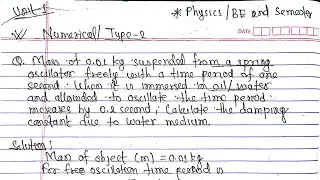 Unit-1
* Physics/BE 2nd Semester
Numerical/Type-2
DATE
Q. Mass of 0.01 kg suspended from a spring
oscillator freely with a time period of one
second. When it is immersed in oil/water
and allowded to oscillate the time period
increases by 0.2 second, Calculate the damping
constant due to water medium.
Solution:
Mass of object (m) = 0.01 kg
for free oscillation time period is